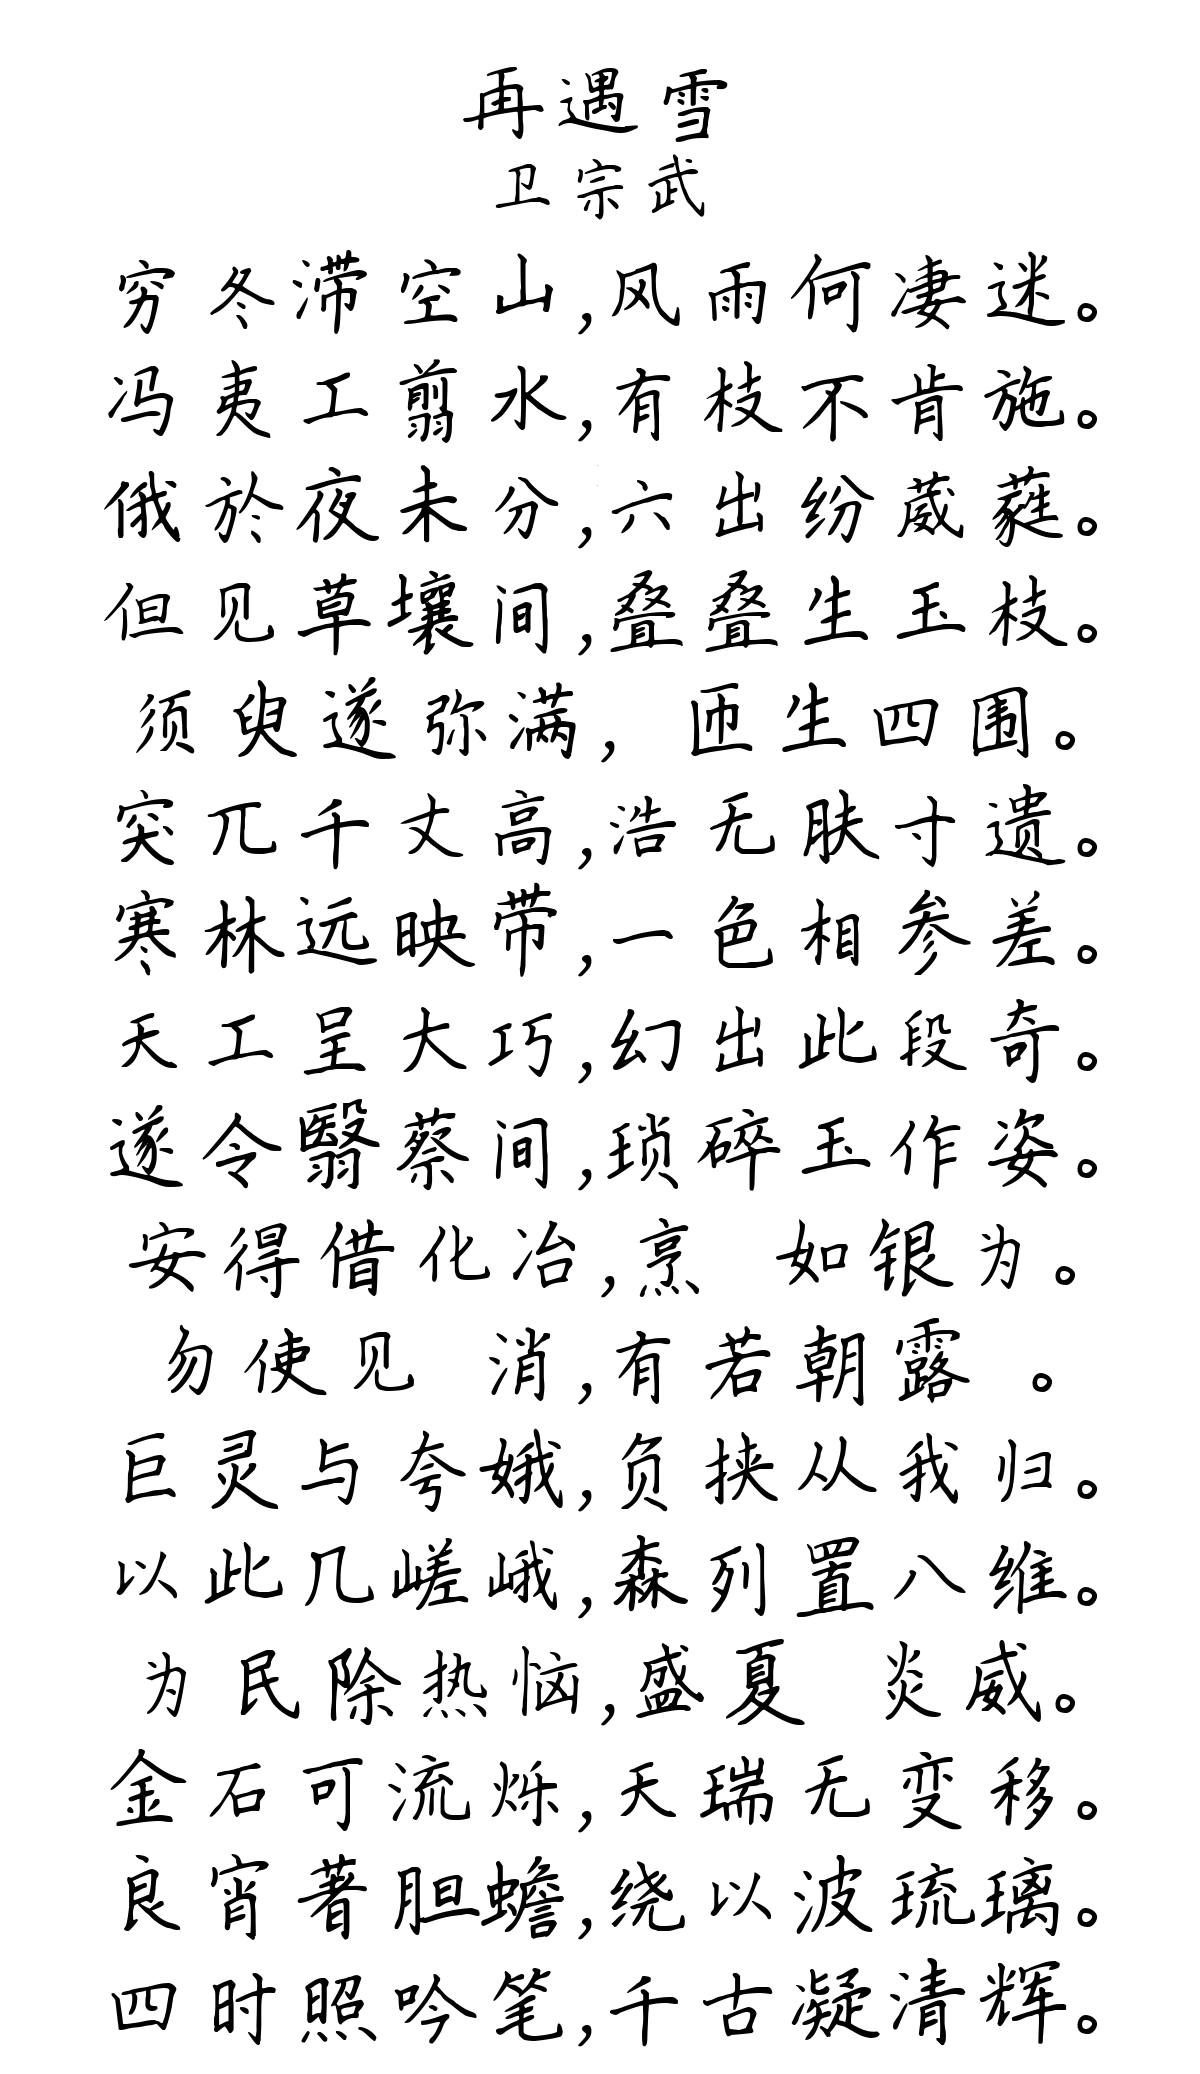 再遇雪
卫宗武
穷冬滞空山,风雨何凄迷。
冯夷工翦水,有枝不肯施。
俄於夜未分,六出纷葳蕤。
但见草壤间,叠叠生玉枝。
须臾遂弥满,匝生四围。
突兀千丈高,浩无肤寸遗。
寒林远映带,一色相参差。
天工呈大巧,幻出此段奇。
遂令翳蔡间,琐碎玉作姿。
安得借化冶,烹 如银为。
勿使见 消,有若朝露 。
巨灵与夸娥,负挟从我归。
以此几嵯峨,森列置八维。
为民除热恼,盛夏 炎威。
金石可流烁,天瑞无变移。
良宵著胆蟾,绕以波琉璃。
四时照吟笔,千古凝清辉。